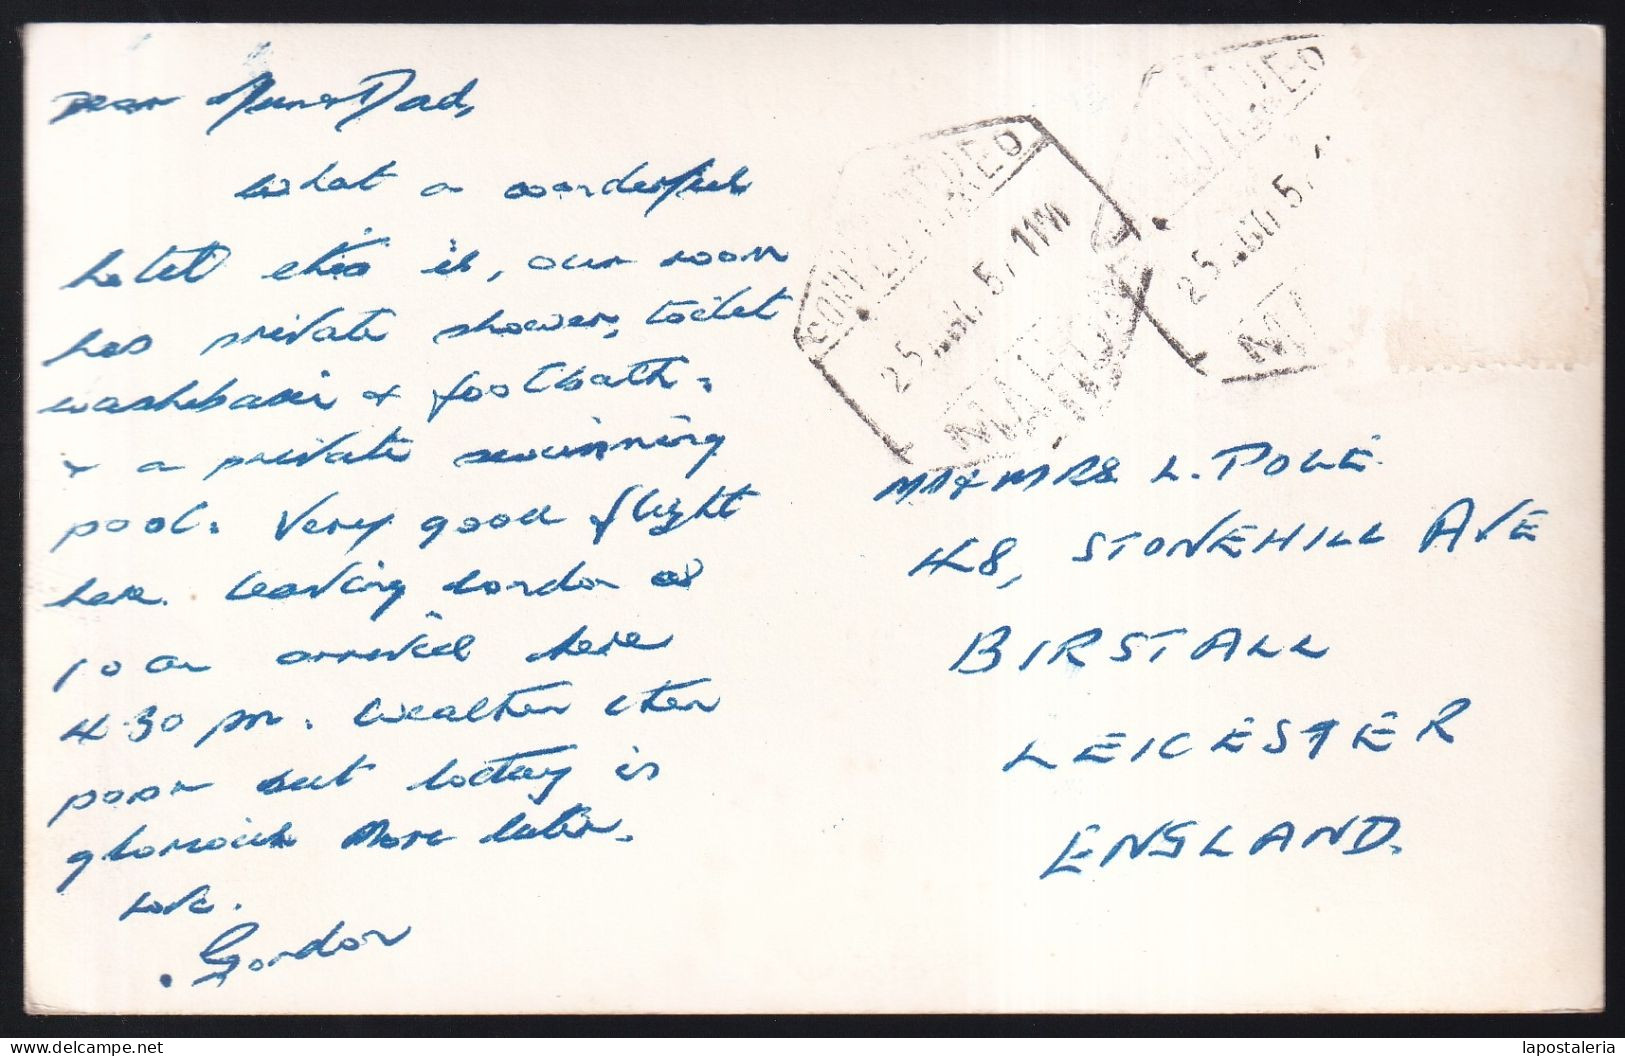 Dear Mum & Dad,
What a wonderful
hotel this is, our room
has private shower, toilet
washbasin & footbath.
& a private swimming
pool. Very good flight
here. leaving London at
10 am arrived here
4.30 pm. Weather then
poor but today is
glorious more later.
Love.
Gordon
CORREO AEREO
25 AGO. 5
25 AGO. 5
MR & MRS L. POLE
48, STONEHILL AVE
BIRSTALL
LEICESTER
ENGLAND.
delcampe.net
lapostaleria